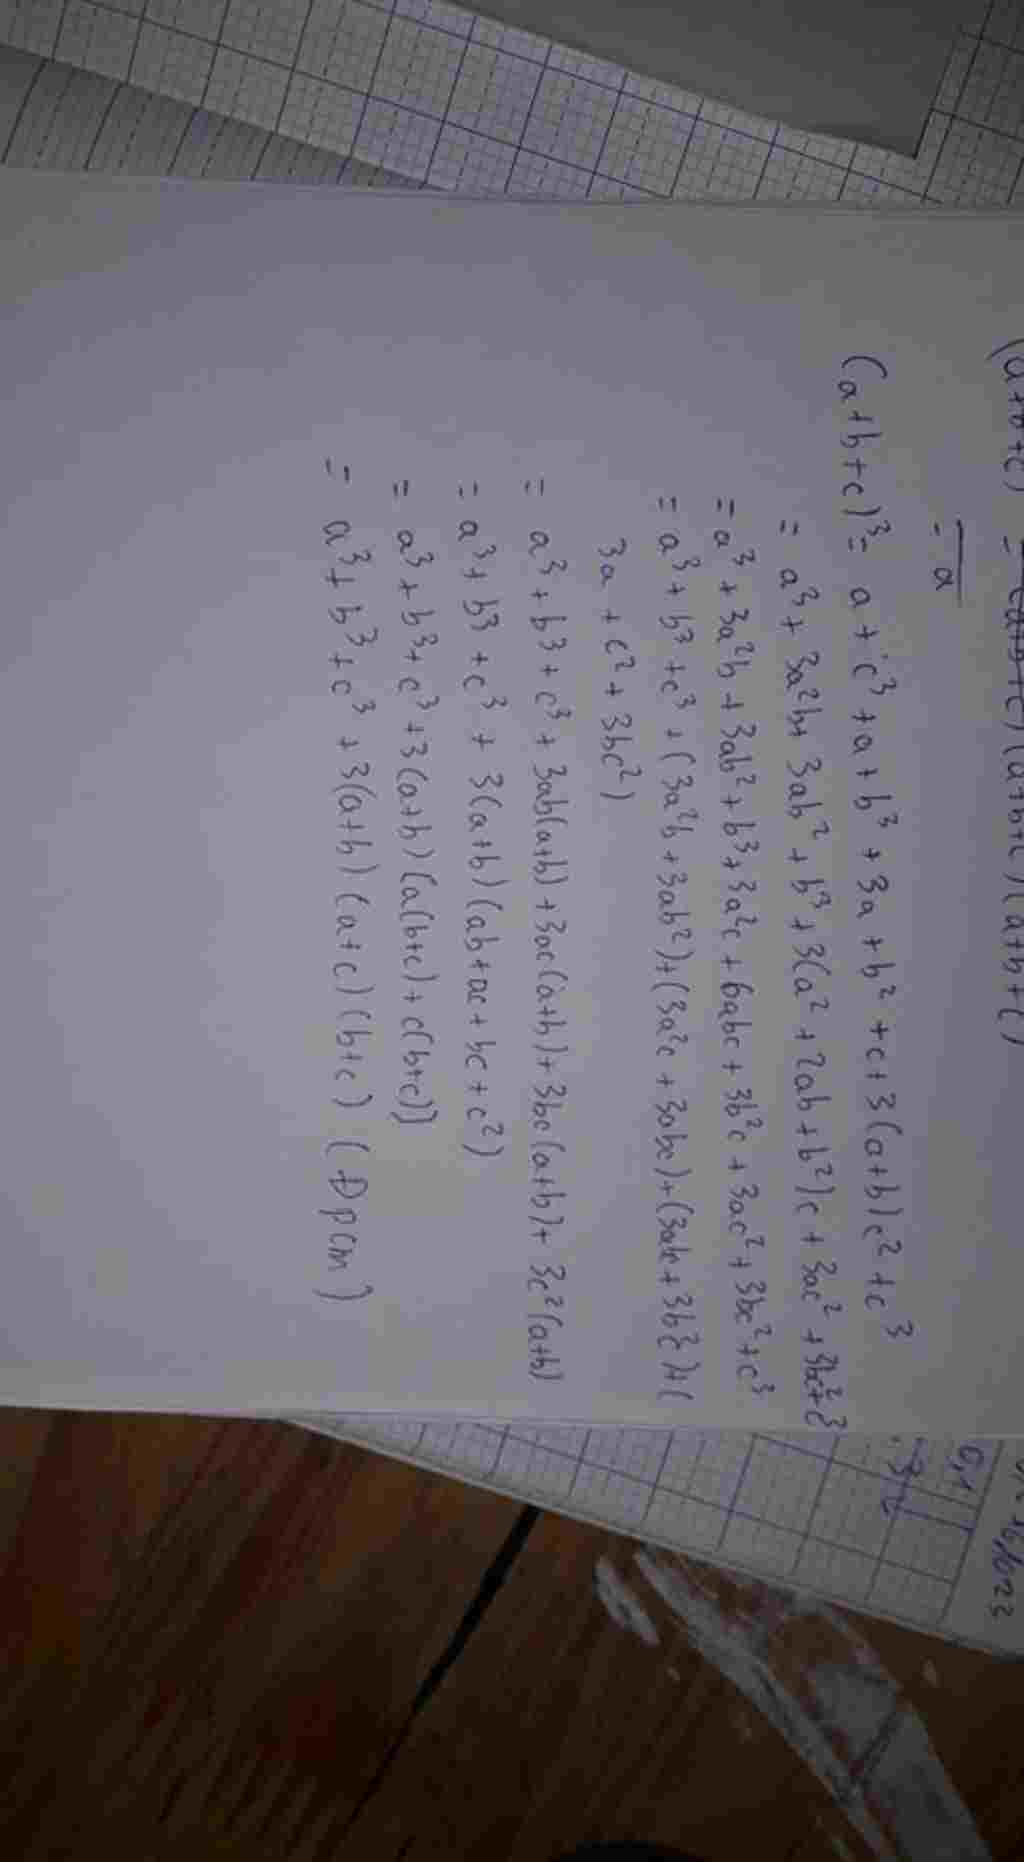 (a+b+c) = (a+b+c)(a+b+c)(a+b+c)
= a
(a+b+c)³= a+c³+a+b³+3a+b²+c+3(a+b)c²+c³
= a³+3a²b+3ab²+b³+3(a²+2ab+b²)c+3ac²+3bc²+c³
= a³+3a²b+3ab²+b³+3a²c+6abc+3b²c+3ac²+3bc²+c³
= a³+b³+c³+(3a²b+3ab²)+(3a²c+3abc)+(3abc+3b²c)+(
3a+c²+3bc²)
= a³+b³+c³+3ab(a+b)+3ac(a+b)+3bc(a+b)+3c²(a+b)
= a³+b³+c³+3(a+b)(ab+ac+bc+c²)
= a³+b³+c³+3(a+b)(a(b+c)+c(b+c))
= a³+b³+c³+3(a+b)(a+c)(b+c) (Đpcm)